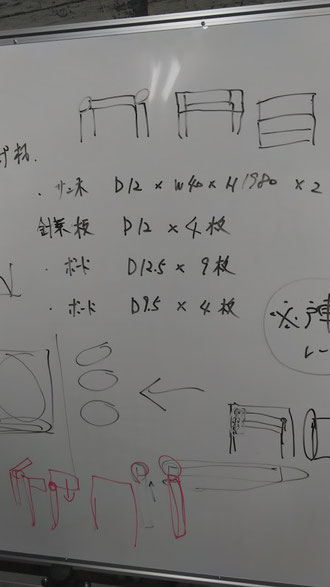 ・サン木 D12 × W40 × H1980 × 2
針葉板 D12 × 4枚
・ボード D12.5 × 9枚
・ボード D9.5 × 4枚
※
レー